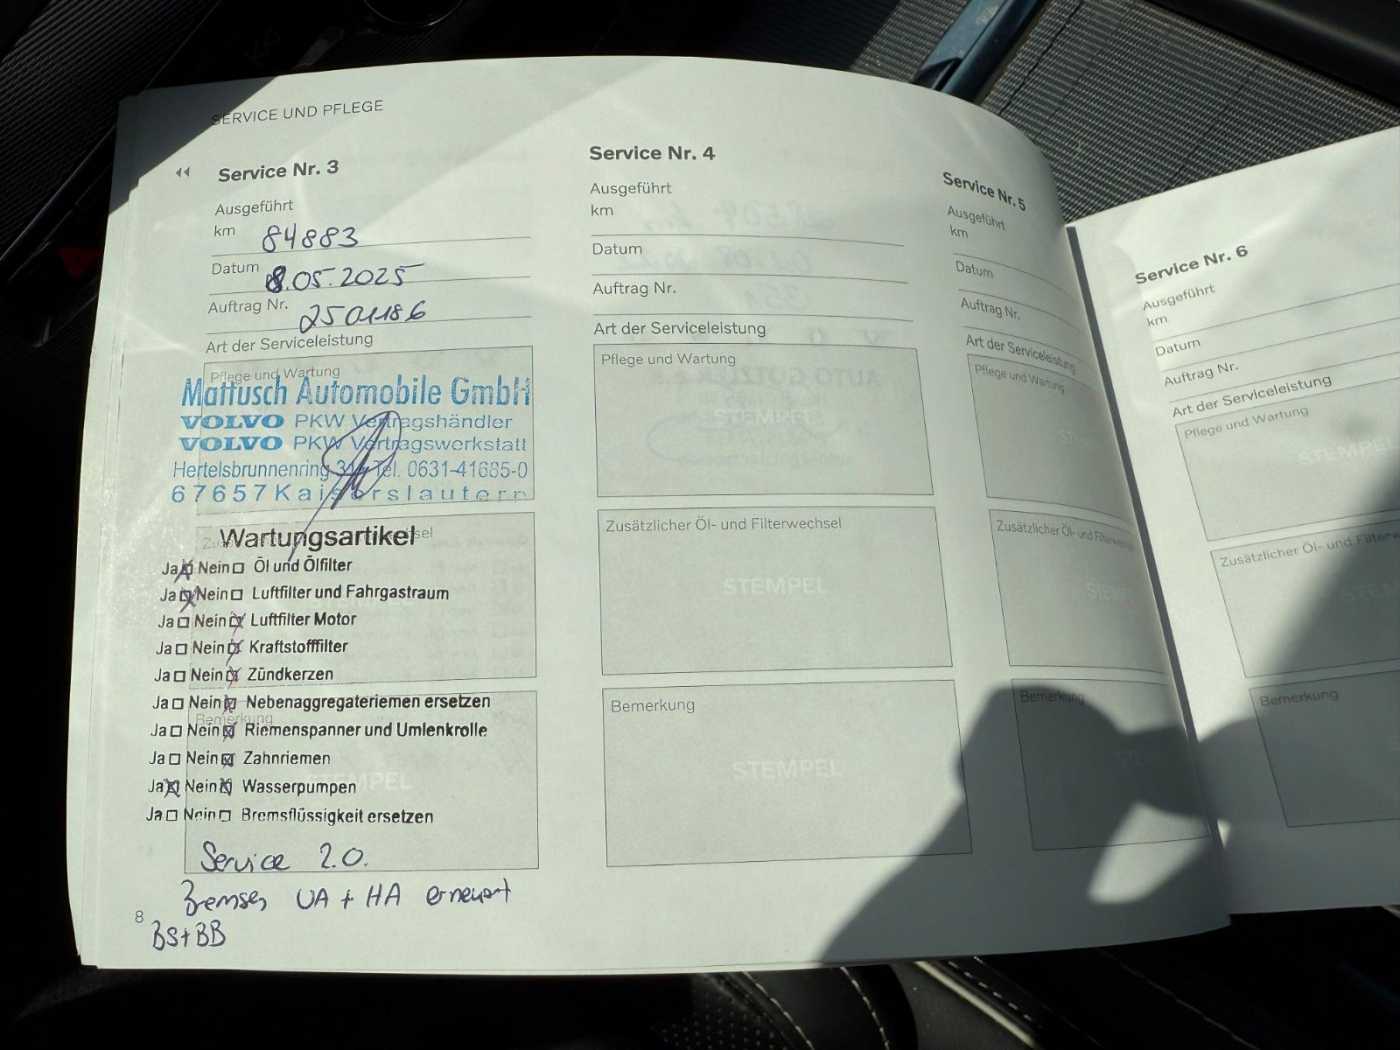 SERVICE UND PFLEGE
Service Nr. 3
Ausgeführt
km 84883
Datum 8.05.2025
Auftrag Nr. 2501186
Art der Serviceleistung
Pflege und Wartung
Mattusch Automobile GmbH
VOLVO PKW Vertragshändler
VOLVO PKW Vertragswerkstatt
Hertelsbrunnenring Tel. 0631-41685-0
67657 Kaiserslautern
Wartungsartikel
Ja Nein Öl und Ölfilter
Ja Nein Luftfilter und Fahrgastraum
Ja Nein Luftfilter Motor
Ja Nein Kraftstofffilter
Ja Nein Zündkerzen
Ja Nein Nebenaggregateriemen ersetzen
Bemerkung
Ja Nein Riemenspanner und Umlenkrolle
Ja Nein Zahnriemen
Ja Nein Wasserpumpen
Ja Nein Bremsflüssigkeit ersetzen
Service 2.0.
Bremsen VA + HA erneuert
8
BS+BB
Service Nr. 4
Ausgeführt
km
Datum
Auftrag Nr.
Art der Serviceleistung
Pflege und Wartung
STEMPEL
Zusätzlicher Öl- und Filterwechsel
STEMPEL
Bemerkung
STEMPEL
Service Nr. 5
Ausgeführt
km
Datum
Auftrag Nr.
Art der Serviceleistung
Pflege und Wartung
Zusätzlicher Öl- und Filterwechsel
Bemerkung
Service Nr. 6
Ausgeführt
km
Datum
Auftrag Nr.
Art der Serviceleistung
Pflege und Wartung
STEMPEL
Zusätzlicher Öl- und Filterw
Bemerkung